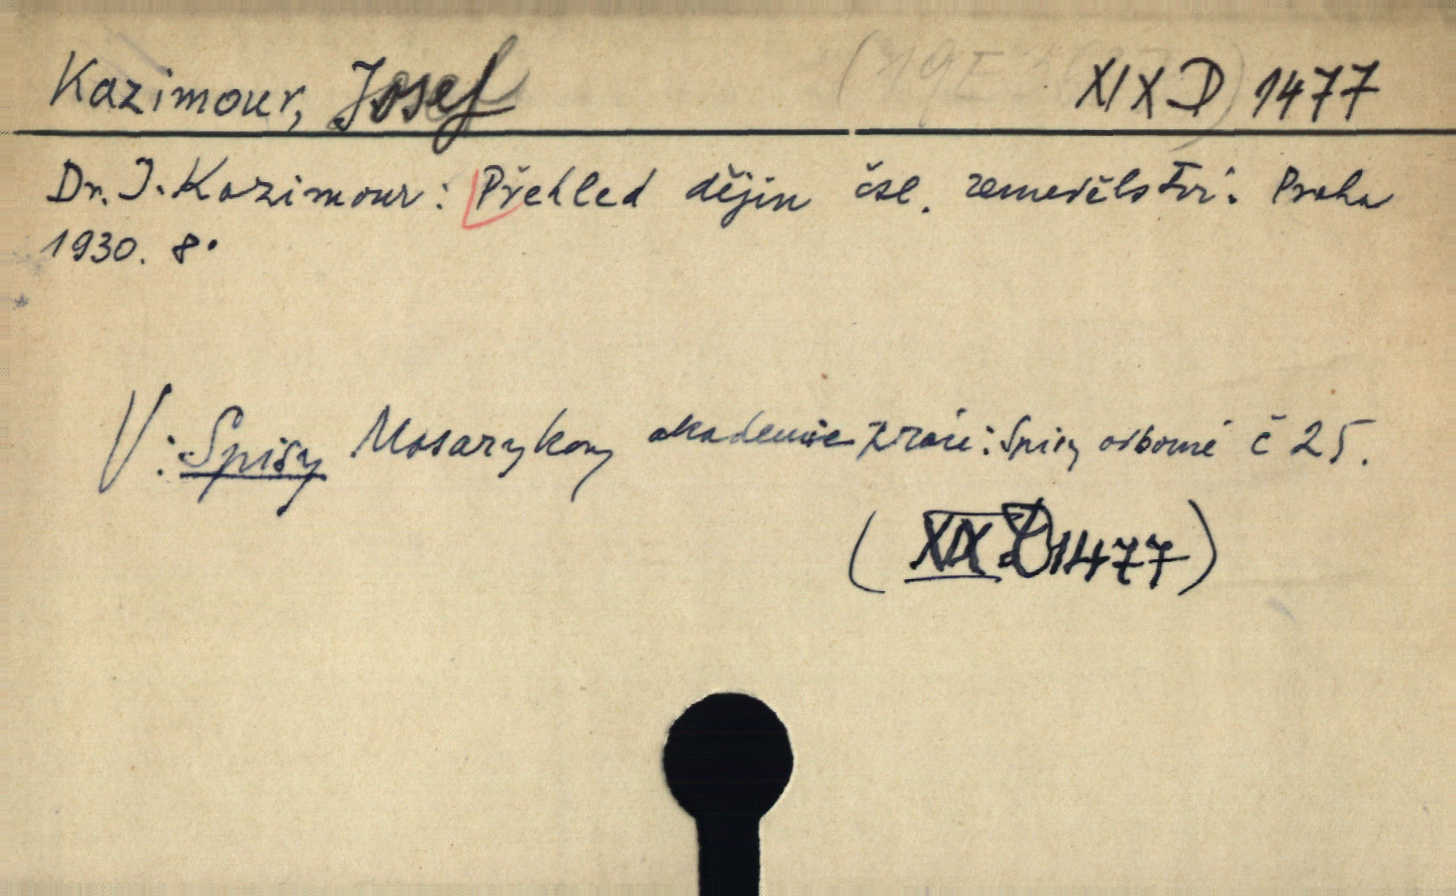 Kazimour, Josef XIX D 1477
Dr. J. Kazimour: Přehled dějin čsl. zemedělství. Praha
1930. 8°
V: Spisy Masarykovy akademie práce: Spisy odborné č 25.
(XIX D 1477)